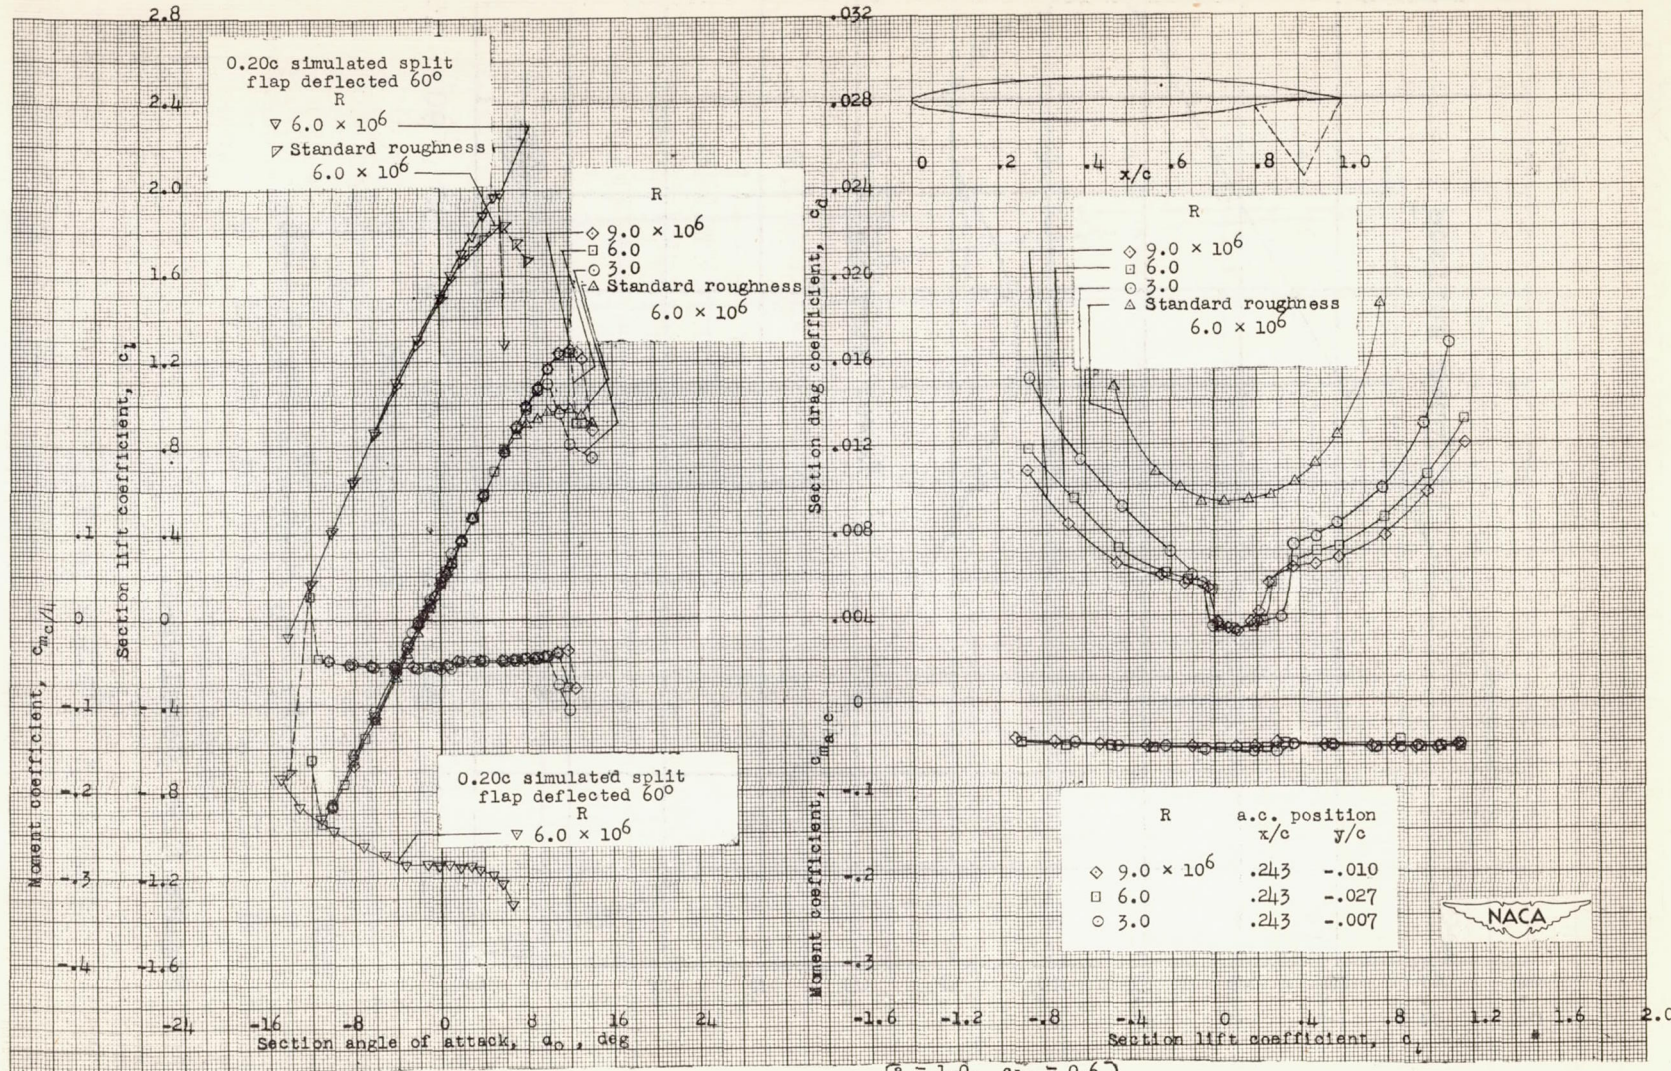 2.8
2.4
2.0
1.6
1.2
.8
.4
0
-.4
-.8
-1.2
-1.6
Section lift coefficient, cₗ
.1
0
-.1
-.2
-.3
-.4
Moment coefficient, c_m_c/4
-24 -16 -8 0 8 16 24
Section angle of attack, α₀, deg
0.20c simulated split
flap deflected 60°
R
▽ 6.0 × 10⁶
Standard roughness
6.0 × 10⁶
R
◇ 9.0 × 10⁶
□ 6.0
○ 3.0
△ Standard roughness
6.0 × 10⁶
0.20c simulated split
flap deflected 60°
R
▽ 6.0 × 10⁶
.032
.028
.024
.020
.016
.012
.008
.004
0
-.1
-.2
-.3
Section drag coefficient, c_d
Moment coefficient, c_m_a.c.
0 .2 .4 .6 .8 1.0
x/c
R
◇ 9.0 × 10⁶
□ 6.0
○ 3.0
△ Standard roughness
6.0 × 10⁶
R a.c. position
x/c y/c
◇ 9.0 × 10⁶ .243 -.010
□ 6.0 .243 -.027
○ 3.0 .243 -.007
NACA
-1.6 -1.2 -.8 -.4 0 .4 .8 1.2 1.6 2.0
Section lift coefficient, cₗ